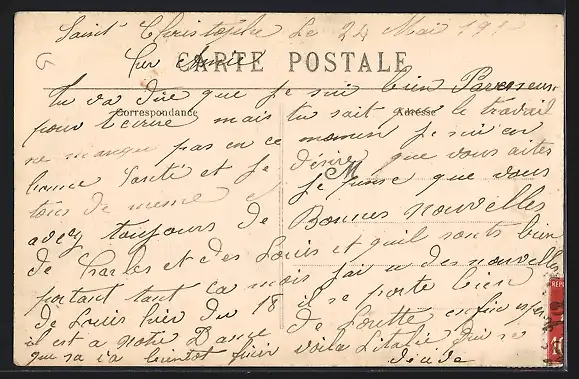 Saint Christophe Le 24 Mai 191
Cher Amie
CARTE POSTALE
Correspondance Adresse
tu va dire que je sui bien Paresseuse
pour t'ecrire mais tu sait que le travail
ne manque pas en ce moment je sui en
bonne santé et je désire que vous aites
tous de meme je pense que vous
avez toujours de Bonnes nouvelles
de Charles et des Louis et quil sonts bien
portant tant ca mois jai u des nouvelles
de Louis hier du 18 il se porte bien
il est a notre Dame de Lorette enfin
que sa va bientot finir voila L'italie qui se
décide